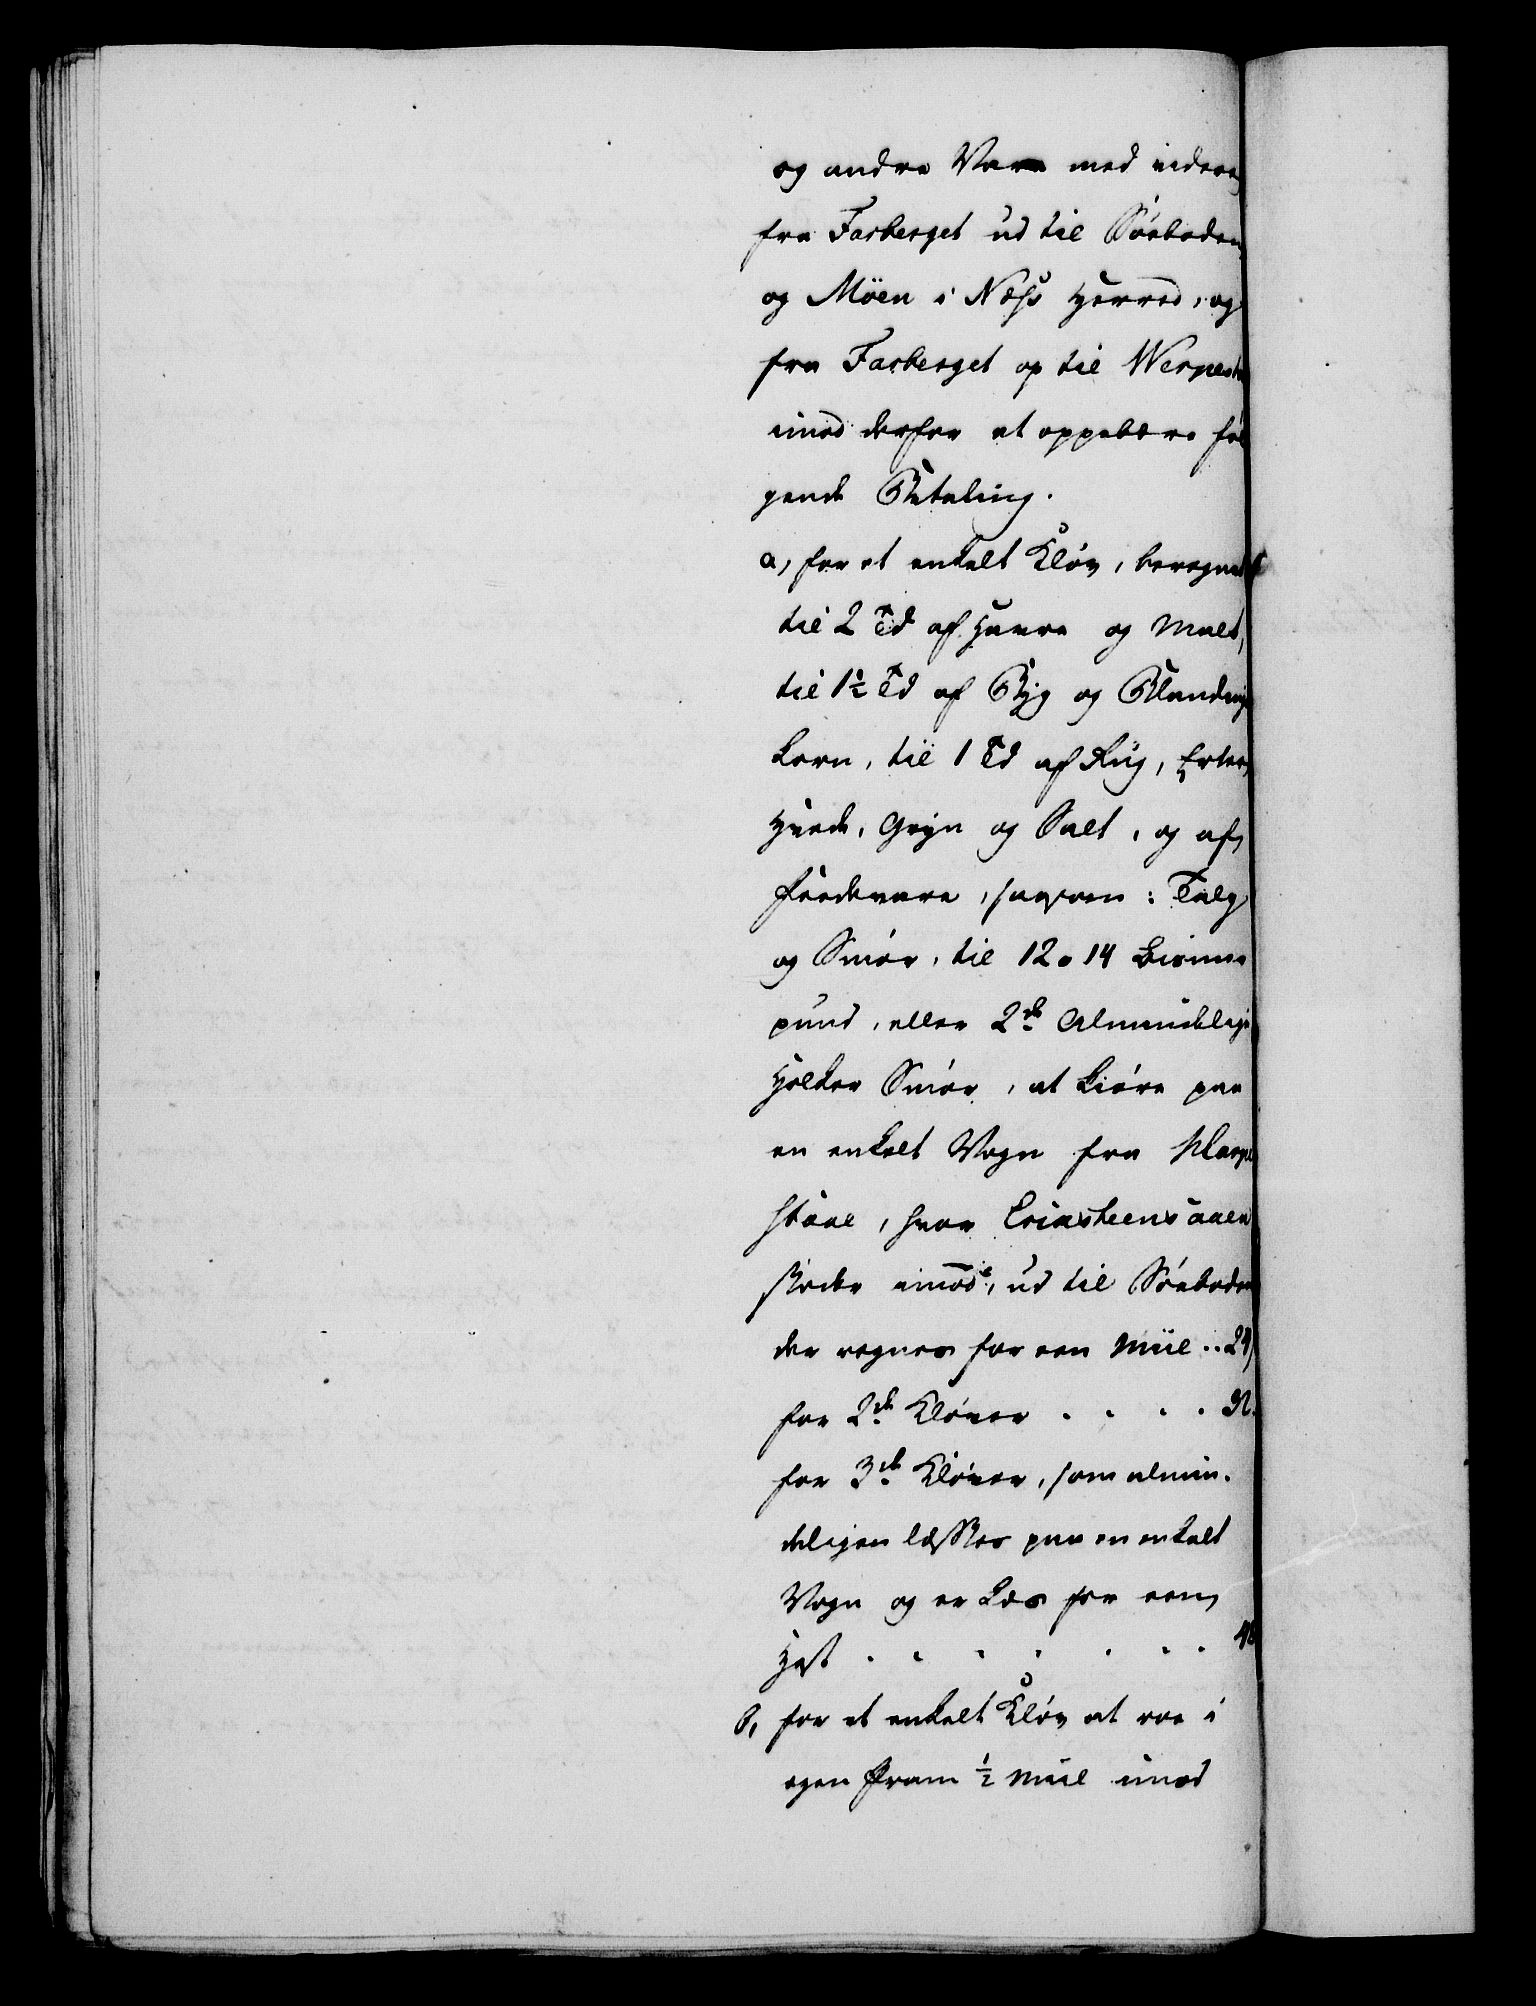 og andre Vare med videre,
fra Farberget ud til Söeboden
og Möen i Næss Herred, og
fra Farberget op til
imod derfor at oppebære föl
gende Betaling.
a, for et enkelt Klöv, beregnet
til 2 Td af Havre og Malt,
til 1½ Td af Byg og Blandings
Korn, til 1 Td af Rug, Erter,
Hvede, Gryn og Salt, og af
Feedevare, saasom: Talg
og Smör, til 12 a 14 Bismer
pund, eller 2de Almindelige
Holker Smör, at kiöre paa
en enkelt Vogn fra
hvor
støder imod, ud til Söeboden
der regnes for een Miil .. 24,
for 2de Klöver . . . . 32.
for 3de Klöver, som almin-
deligen læsses paa en enkelt
Vogn og er Læs for een
Hest . . . . . . . 48
b, for et enkelt Klöv at roe i
egen Pram ½ Miil imod